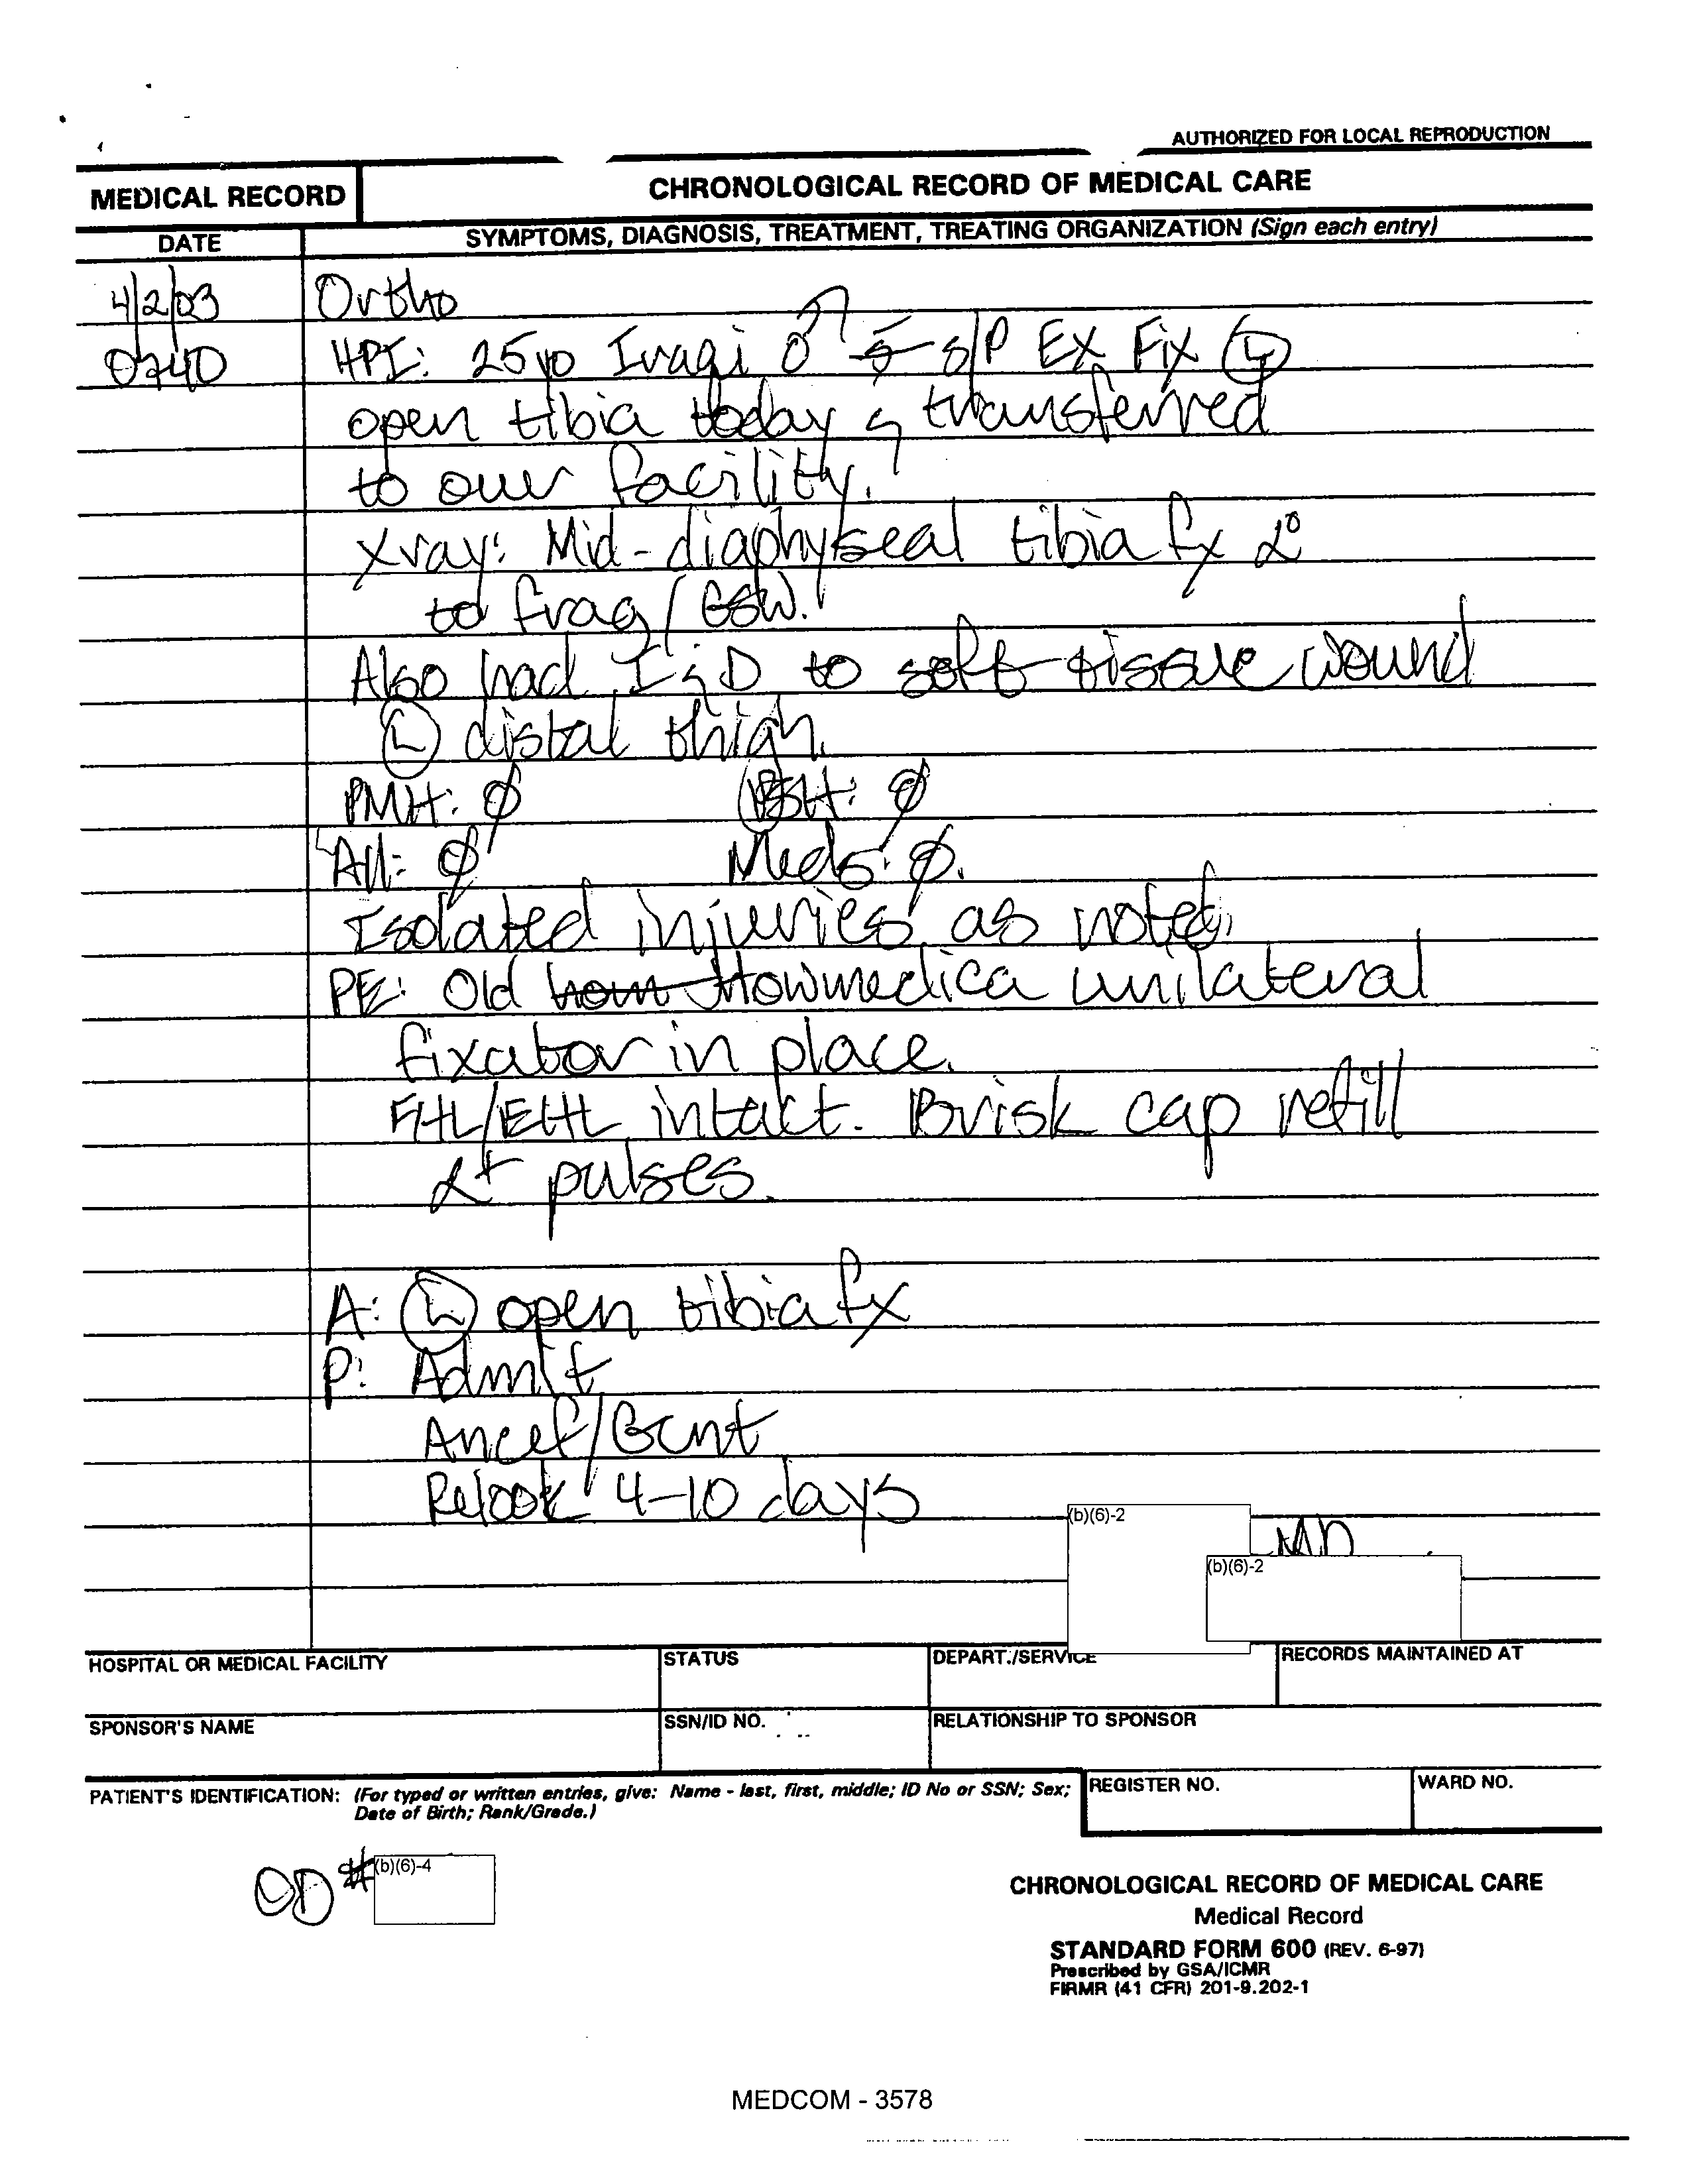 AUTHORIZED FOR LOCAL REPRODUCTION
MEDICAL RECORD
CHRONOLOGICAL RECORD OF MEDICAL CARE
DATE
SYMPTOMS, DIAGNOSIS, TREATMENT, TREATING ORGANIZATION (Sign each entry)
4/2/03 Ortho
0740 HPI: 25 yo Iraqi ♂ s/P Ex Fix Ⓛ
open tibia today & transferred
to our facility.
Xray: Mid-diaphyseal tibia fx 2°
to frag/GSW.
Also had I&D to soft tissue wound
Ⓛ distal thigh.
PMH: ∅ PSH: ∅
All: ∅ Meds: ∅.
Isolated injuries as noted.
PE: Old Howmedica unilateral
fixator in place.
FHL/EHL intact. Brisk cap refill
2+ pulses.
A: Ⓛ open tibia fx
P: Admit
Ancef/Gent
Relook 4-10 days
(b)(6)-2
MD
(b)(6)-2
HOSPITAL OR MEDICAL FACILITY
STATUS
DEPART./SERVICE
RECORDS MAINTAINED AT
SPONSOR'S NAME
SSN/ID NO.
RELATIONSHIP TO SPONSOR
PATIENT'S IDENTIFICATION: (For typed or written entries, give: Name - last, first, middle; ID No or SSN; Sex;
Date of Birth; Rank/Grade.)
REGISTER NO.
WARD NO.
# (b)(6)-4
CHRONOLOGICAL RECORD OF MEDICAL CARE
Medical Record
STANDARD FORM 600 (REV. 6-97)
Prescribed by GSA/ICMR
FIRMR (41 CFR) 201-9.202-1
MEDCOM - 3578